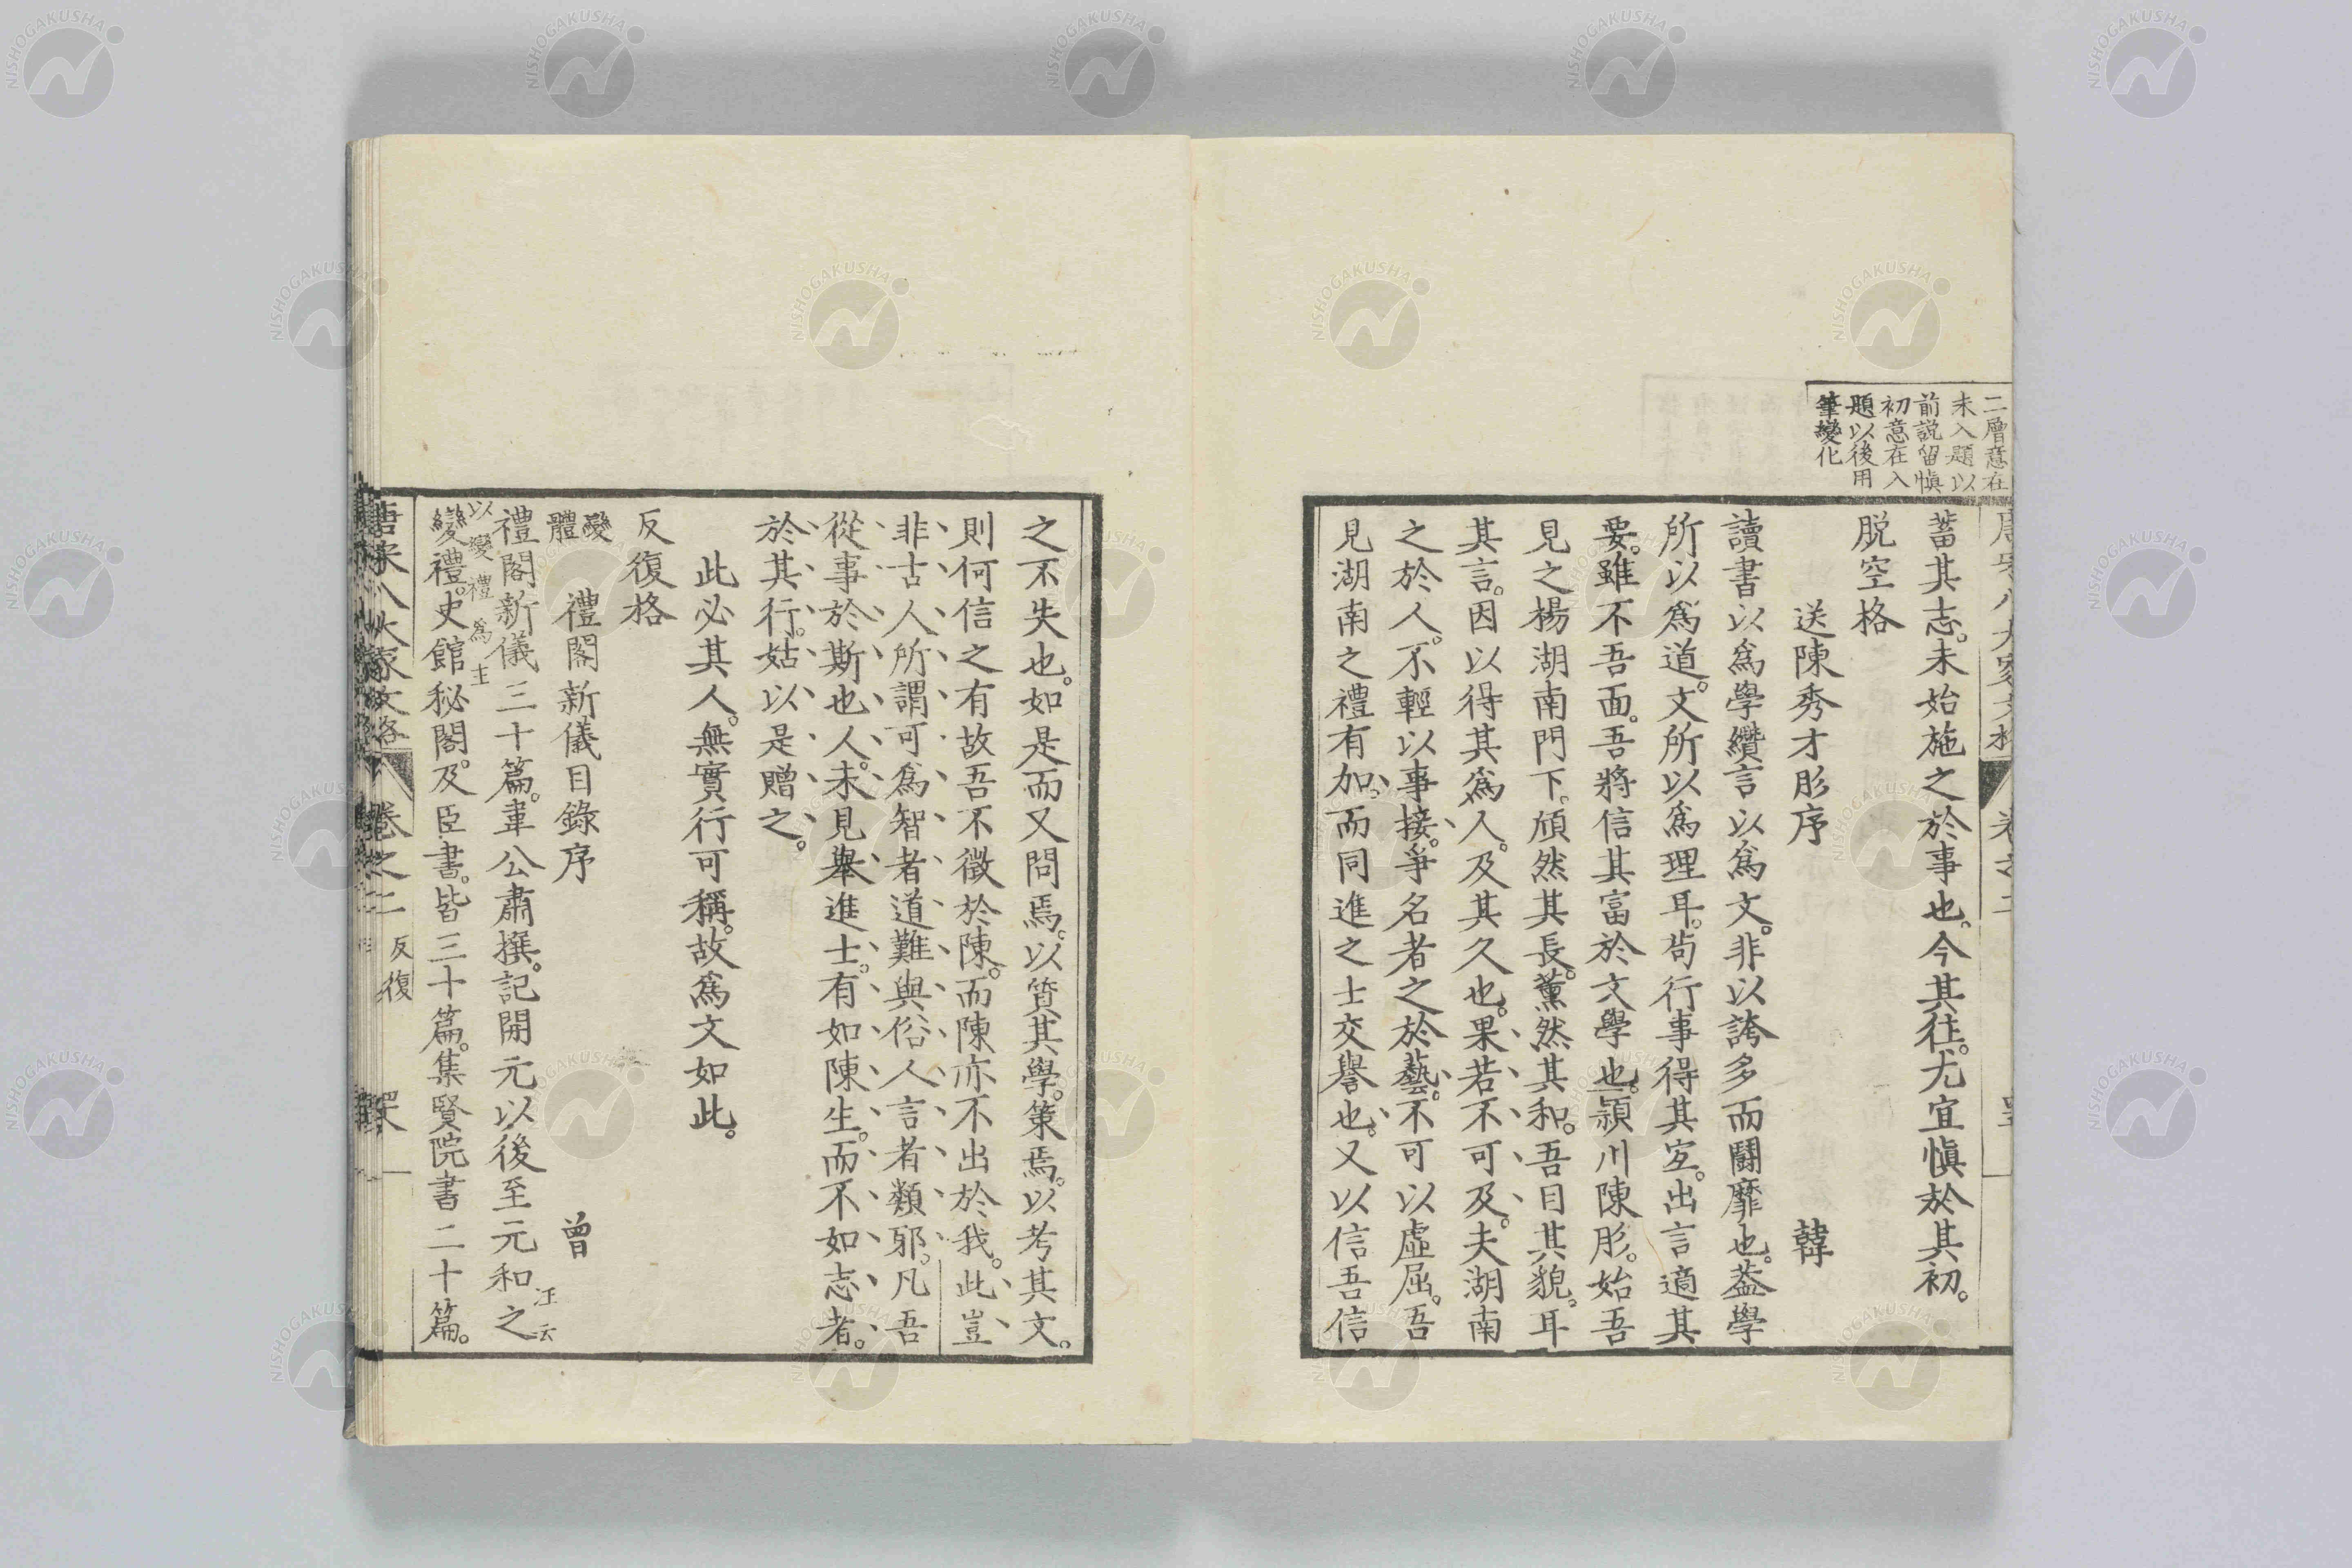 二層意在
未入題以
前説留愼
初意在入
題以後用
筆變化
蓄其志。未始施之於事也。今其往。尤宜愼於其初。
脱空格
送陳秀才彤序 韓
讀書以爲學纘言以爲文。非以誇多而鬪靡也。葢學
所以爲道。文所以爲理耳。茍行事得其宐。出言適其
要。雖不吾面。吾將信其富於文學也。潁川陳彤。始吾
見之楊湖南門下。頎然其長。薰然其和。吾目其貌。耳
其言。因以得其爲人。及其久也。果若不可及。夫湖南
之於人。不輕以事接。爭名者之於藝。不可以虛屈。吾
見湖南之禮有加。而同進之士交譽也。又以信吾信
之不失也。如是而又問焉。以質其學。策焉。以考其文。
則何信之有故吾不徵於陳。而陳亦不出於我。此豈
非古人所謂可爲智者道難與俗人言者類邪。凡吾
從事於斯也人。未見舉進士。有如陳生。而不如志者。
於其行。姑以是贈之。
此必其人。無實行可稱。故爲文如此。
反復格
變體 禮閣新儀目錄序 曾
禮閣新儀三十篇。韋公肅撰。記開元以後至元和之
汪云
以變禮爲主
變禮。史館秘閣。及臣書。皆三十篇。集賢院書二十篇。
唐宋八大家文格 卷之二 反復
NISHOGAKUSHA